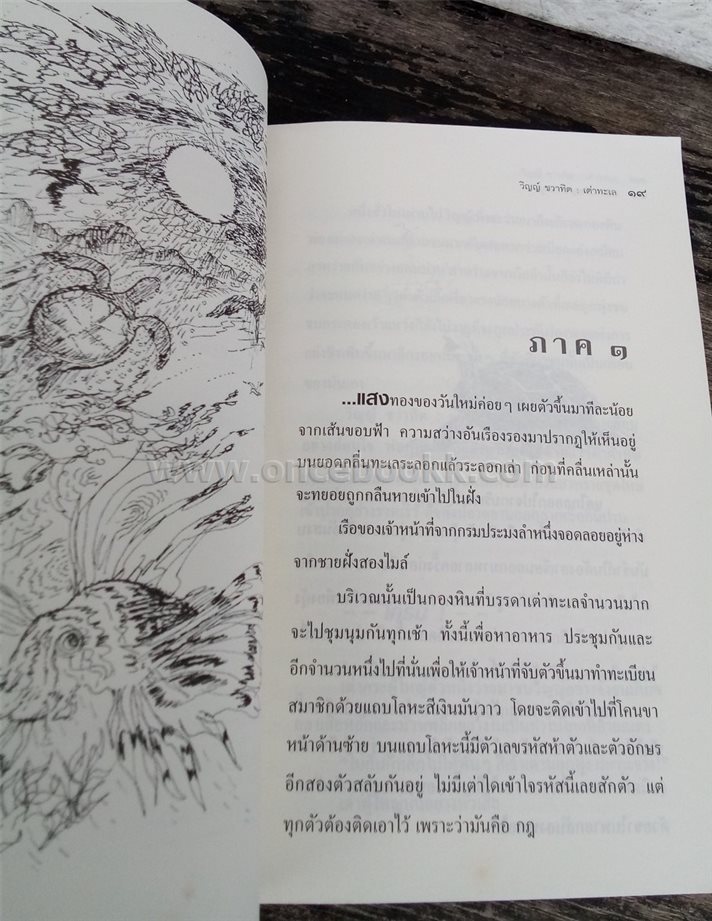 วิญญ์ ขวาทิต : เต่าทะเล ๑๙
ภาค ๑
...แสงทองของวันใหม่ค่อยๆ เผยตัวขึ้นมาทีละน้อย
จากเส้นขอบฟ้า ความสว่างอันเรืองรองมาปรากฏให้เห็นอยู่
บนยอดคลื่นทะเลระลอกแล้วระลอกเล่า ก่อนที่คลื่นเหล่านั้น
จะทยอยถูกกลืนหายเข้าไปในฝั่ง
เรือของเจ้าหน้าที่จากกรมประมงลำหนึ่งจอดลอยอยู่ห่าง
จากชายฝั่งสองไมล์
บริเวณนั้นเป็นกองหินที่บรรดาเต่าทะเลจำนวนมาก
จะไปชุมนุมกันทุกเช้า ทั้งนี้เพื่อหาอาหาร ประชุมกันและ
อีกจำนวนหนึ่งไปที่นั่นเพื่อให้เจ้าหน้าที่จับตัวขึ้นมาทำทะเบียน
สมาชิกด้วยแถบโลหะสีเงินมันวาว โดยจะติดเข้าไปที่โคนขา
หน้าด้านซ้าย บนแถบโลหะนี้มีตัวเลขรหัสห้าตัวและตัวอักษร
อีกสองตัวสลับกันอยู่ ไม่มีเต่าใดเข้าใจรหัสนี้เลยสักตัว แต่
ทุกตัวต้องติดเอาไว้ เพราะว่ามันคือ กฎ
www.oncebookk.com